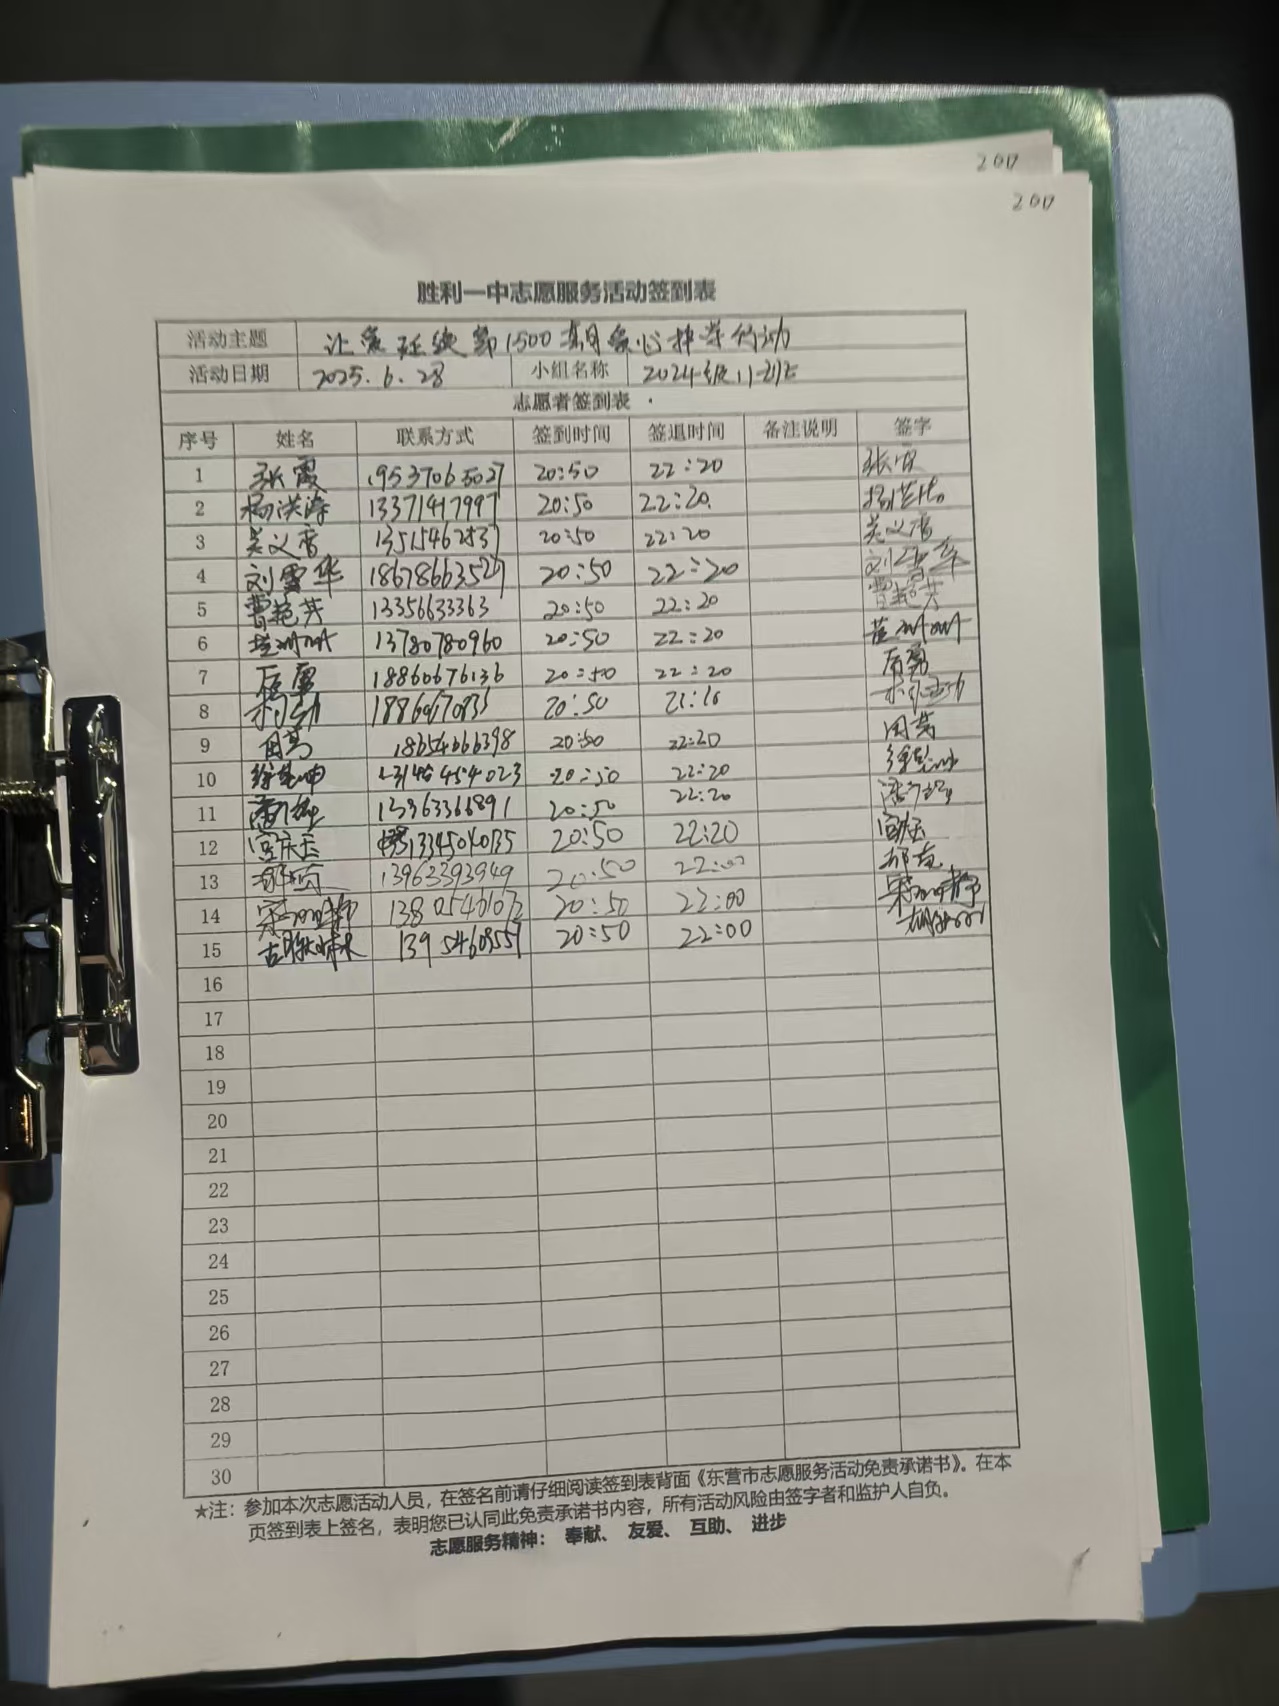 2017
2017
胜利一中志愿服务活动签到表
活动主题 让爱延续第1500期爱心捧学行动
活动日期 2025.6.28 小组名称 2024级11班
志愿者签到表
序号 姓名 联系方式 签到时间 签退时间 备注说明 签字
1 张霞 19537065027 20:50 22:20 张霞
2 杨洪涛 13371417997 20:50 22:20 杨洪涛
3 吴义雷 20:50 22:20 吴义雷
4 刘雪华 18678663527 20:50 22:20 刘雪华
5 曹艳芳 13356633363 20:50 22:20 曹艳芳
6 13780780960 20:50 22:20
7 18860676136 20:50 22:20
8 20:50 21:10
9 周芳 18654666398 20:50 22:20 周芳
10 20:50 22:20
11 13963366891 20:50 22:20
12 宫庆玉 13345040135 20:50 22:20 宫庆玉
13 13963393949 20:50 22:00
14 20:50 22:00
15 20:50 22:00
16
17
18
19
20
21
22
23
24
25
26
27
28
29
30
★注: 参加本次志愿活动人员，在签名前请仔细阅读签到表背面《东营市志愿服务活动免责承诺书》。在本
页签到表上签名，表明您已认同此免责承诺书内容，所有活动风险由签字者和监护人自负。
志愿服务精神： 奉献、 友爱、 互助、 进步